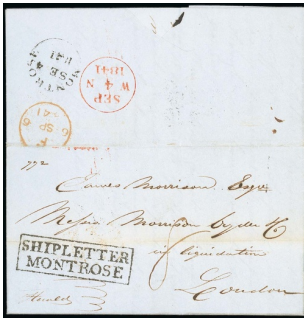 MONTROSE
SE 4
1841
SEP
W 4 N
1841
6
SP
41
792
James Morrison Esqr
Messrs Morrison
in liquidation
London
SHIP LETTER
MONTROSE
Herald